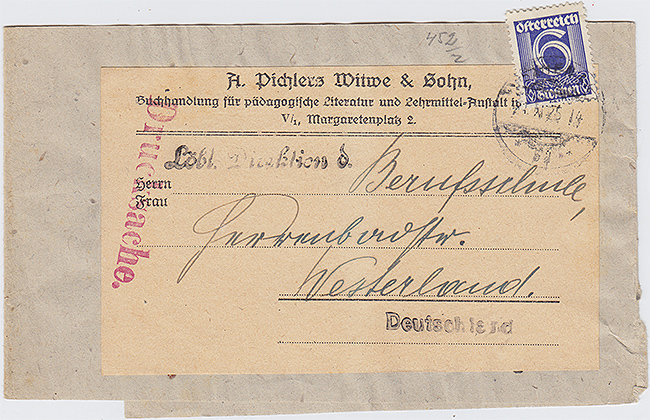 452/2
Österreich
6
Groschen
A. Pichlers Witwe & Sohn,
Buchhandlung für pädagogische Literatur und Lehrmittel-Anstalt in
V/1, Margaretenplatz 2.
25 14
Drucksache.
Löbl. Direktion d.
Herrn
Frau
Berufsschule,
Herrenbadstr.
Westerland.
Deutschland